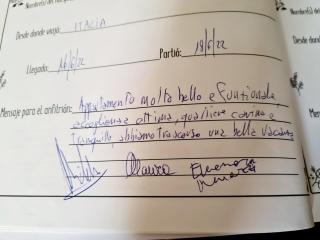 Nombre(s) del huésped
Desde donde viaja: ITALIA
Llegada: 16/6/22 Partió: 19/6/22
Mensaje para el anfitrión: Appartamento molto bello e funzionale,
accoglienza ottima, quartiere comodo e
tranquillo abbiamo trascorso una bella vacanza
Nombre(s)
Desde don
Llegada:
Mensaje